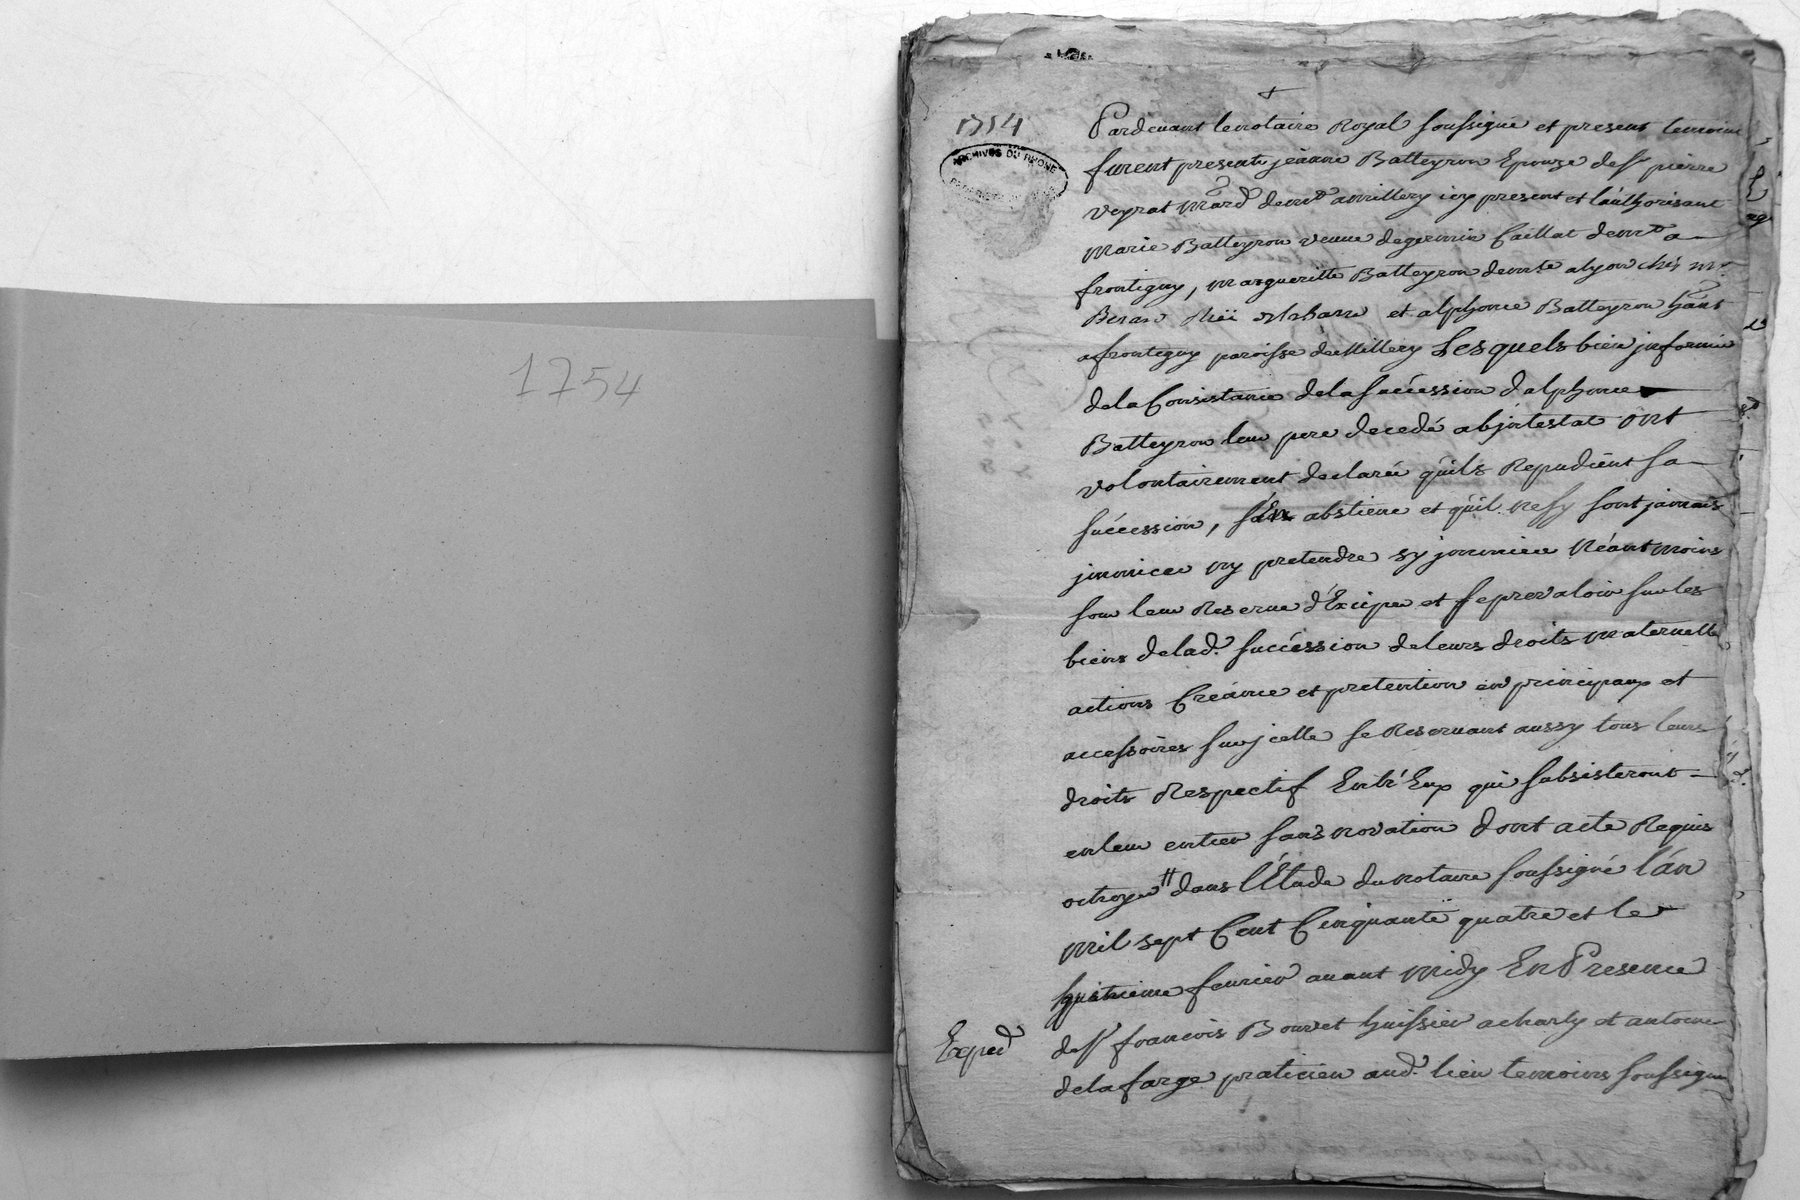 1754
1754
ARCHIVES DU RHONE
Pardevant le notaire Royal soussigné et present temoins
furent presents jeanne Batteyron Epouze de Sr pierre
veyrat mard demt a millery icy present et l'authorisant
Marie Batteyron veuve de germin Caillat demte a
frontigny, margueritte Batteyron demte a lyon chés Mr
et alphonce Batteyron hant
a frontigny paroisse de Millery Lesquels bien informés
de la Consistance de la succession d'alphonce
Batteyron leur pere decedé abjntestat ont
volontairement declaré qu'ils Repudient sa
succession, s'en abstiene et qu'il ne sy sont jamais
jmmicee ny pretendre sy jmmicee Néantmoins
sour leur Reserve d'Exciper et se prevaloir sur les
biens de lad. succession de leurs droits maternelle
actions Creance et pretention en principaux et
accessoires sur jcelle se Reservant aussy tous leurs
droits Respectif Entr'Eux qui subsisteront
en leur entier sans novation dont acte Requis
octroyé dans l'Etude du notaire soussigné l'an
mil sept Cent Cinquante quatre et le
huitieme fevrier avant midy En Presence
de Sr francois Bouvet huissier a charly et antoine
delafarge praticien aud. lieu temoins soussignes
Exped